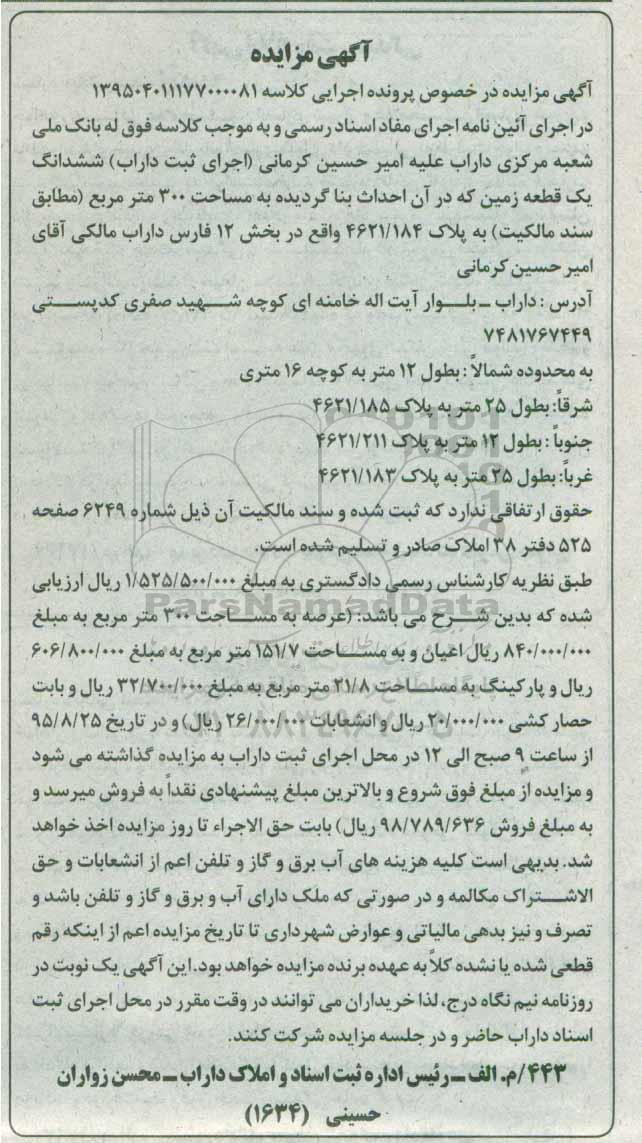 آگهی مزایده
آگهی مزایده در خصوص پرونده اجرایی کلاسه ۱۳۹۵۰۴۰۱۱۱۷۷۰۰۰۰۸۱
در اجرای آئین نامه اجرای مفاد اسناد رسمی و به موجب کلاسه فوق له بانک ملی
شعبه مرکزی داراب علیه امیر حسین کرمانی (اجرای ثبت داراب) ششدانگ
یک قطعه زمین که در آن احداث بنا گردیده به مساحت ۳۰۰ متر مربع (مطابق
سند مالکیت) به پلاک ۴۶۲۱/۱۸۴ واقع در بخش ۱۲ فارس داراب مالکی آقای
امیر حسین کرمانی
آدرس : داراب ـ بلـوار آیت اله خامنه ای کوچه شـهید صفری کدپستی
۷۴۸۱۷۶۷۴۴۹
به محدوده شمالاً : بطول ۱۲ متر به کوچه ۱۶ متری
شرقاً: بطول ۲۵ متر به پلاک ۴۶۲۱/۱۸۵
جنوباً : بطول ۱۲ متر به پلاک ۴۶۲۱/۲۱۱
غرباً: بطول ۲۵ متر به پلاک ۴۶۲۱/۱۸۳
حقوق ارتفاقی ندارد که ثبت شده و سند مالکیت آن ذیل شماره ۶۲۴۹ صفحه
۵۲۵ دفتر ۳۸ املاک صادر و تسلیم شده است.
طبق نظریه کارشناس رسمی دادگستری به مبلغ ۱/۵۲۵/۵۰۰/۰۰۰ ریال ارزیابی
شده که بدین شـرح می باشد: (عرصه به مسـاحت ۳۰۰ متر مربع به مبلغ
۸۴۰/۰۰۰/۰۰۰ ریال اعیان و به مسـاحت ۱۵۱/۷ متر مربع به مبلغ ۶۰۶/۸۰۰/۰۰۰
ریال و پارکینگ به مسـاحت ۲۱/۸ متر مربع به مبلغ ۳۲/۷۰۰/۰۰۰ ریال و بابت
حصار کشی ۲۰/۰۰۰/۰۰۰ ریال و انشعابات ۲۶/۰۰۰/۰۰۰ ریال) و در تاریخ ۹۵/۸/۲۵
از ساعت ۹ صبح الی ۱۲ در محل اجرای ثبت داراب به مزایده گذاشته می شود
و مزایده از مبلغ فوق شروع و بالاترین مبلغ پیشنهادی نقداً به فروش میرسد و
به مبلغ فروش ۹۸/۷۸۹/۶۳۶ ریال) بابت حق الاجراء تا روز مزایده اخذ خواهد
شد. بدیهی است کلیه هزینه های آب برق و گاز و تلفن اعم از انشعابات و حق
الاشـتراک مکالمه و در صورتی که ملک دارای آب و برق و گاز و تلفن باشد و
تصرف و نیز بدهی مالیاتی و عوارض شهرداری تا تاریخ مزایده اعم از اینکه رقم
قطعی شده یا نشده کلاً به عهده برنده مزایده خواهد بود. این آگهی یک نوبت در
روزنامه نیم نگاه درج، لذا خریداران می توانند در وقت مقرر در محل اجرای ثبت
اسناد داراب حاضر و در جلسه مزایده شرکت کنند.
۴۴۳/م. الف ـ رئیس اداره ثبت اسناد و املاک داراب ـ محسن زواران
حسینی (۱۶۳۴)
ParsNamadData